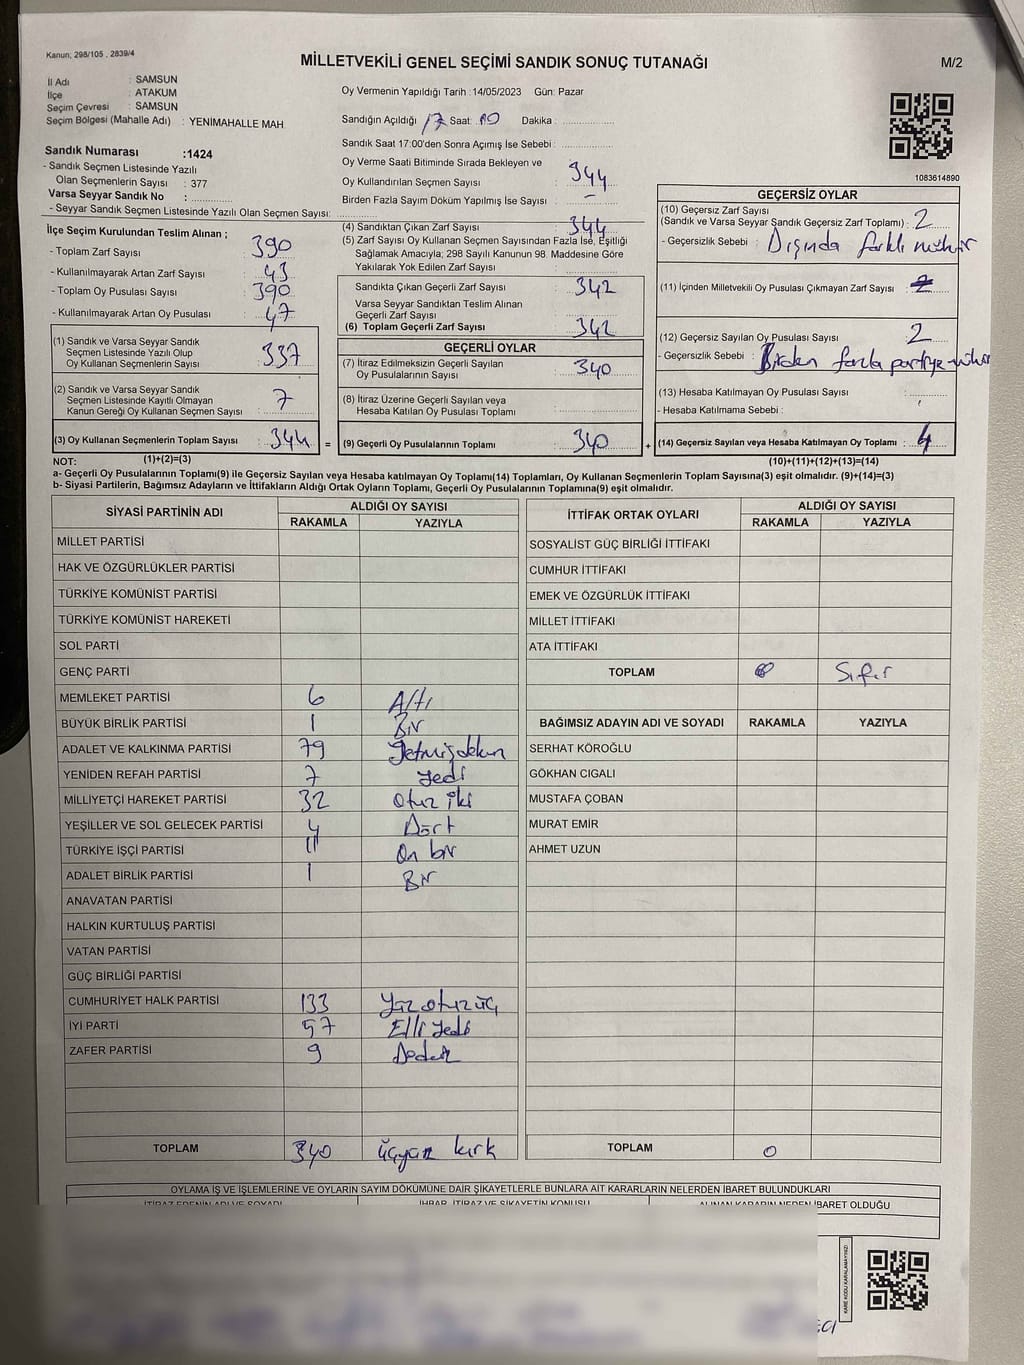 Kanun; 298/105 , 2839/4
MİLLETVEKİLİ GENEL SEÇİMİ SANDIK SONUÇ TUTANAĞI
M/2
İl Adı : SAMSUN
İlçe : ATAKUM
Seçim Çevresi : SAMSUN
Seçim Bölgesi (Mahalle Adı) : YENİMAHALLE MAH
Sandık Numarası :1424
- Sandık Seçmen Listesinde Yazılı
Olan Seçmenlerin Sayısı : 377
Varsa Seyyar Sandık No :
- Seyyar Sandık Seçmen Listesinde Yazılı Olan Seçmen Sayısı:
Oy Vermenin Yapıldığı Tarih :14/05/2023 Gün: Pazar
Sandığın Açıldığı 17 Saat: Dakika :
Sandık Saat 17:00'den Sonra Açımış İse Sebebi :
Oy Verme Saati Bitiminde Sırada Bekleyen ve
Oy Kullandırılan Seçmen Sayısı : 344
Birden Fazla Sayım Döküm Yapılmış İse Sayısı : -
1083614890
İlçe Seçim Kurulundan Teslim Alınan ;
- Toplam Zarf Sayısı : 390
- Kullanılmayarak Artan Zarf Sayısı : 43
- Toplam Oy Pusulası Sayısı : 390
- Kullanılmayarak Artan Oy Pusulası : 47
(1) Sandık ve Varsa Seyyar Sandık
Seçmen Listesinde Yazılı Olup
Oy Kullanan Seçmenlerin Sayısı : 337
(2) Sandık ve Varsa Seyyar Sandık
Seçmen Listesinde Kayıtlı Olmayan
Kanun Gereği Oy Kullanan Seçmen Sayısı : 7
(3) Oy Kullanan Seçmenlerin Toplam Sayısı : 344 =
(4) Sandıktan Çıkan Zarf Sayısı : 344
(5) Zarf Sayısı Oy Kullanan Seçmen Sayısından Fazla İse, Eşitliği
Sağlamak Amacıyla; 298 Sayılı Kanunun 98. Maddesine Göre
Yakılarak Yok Edilen Zarf Sayısı :
Sandıkta Çıkan Geçerli Zarf Sayısı : 342
Varsa Seyyar Sandıktan Teslim Alınan
Geçerli Zarf Sayısı :
(6) Toplam Geçerli Zarf Sayısı : 342
GEÇERLİ OYLAR
(7) İtiraz Edilmeksizin Geçerli Sayılan
Oy Pusulalarının Sayısı : 340
(8) İtiraz Üzerine Geçerli Sayılan veya
Hesaba Katılan Oy Pusulası Toplamı :
(9) Geçerli Oy Pusulalarının Toplamı : 340 +
GEÇERSİZ OYLAR
(10) Geçersiz Zarf Sayısı
(Sandık ve Varsa Seyyar Sandık Geçersiz Zarf Toplamı) : 2
- Geçersizlik Sebebi : Dışında farklı mühür
(11) İçinden Milletvekili Oy Pusulası Çıkmayan Zarf Sayısı :
(12) Geçersiz Sayılan Oy Pusulası Sayısı : 2
- Geçersizlik Sebebi : Birden fazla partiye mühür
(13) Hesaba Katılmayan Oy Pusulası Sayısı :
- Hesaba Katılmama Sebebi :
(14) Geçersiz Sayılan veya Hesaba Katılmayan Oy Toplamı : 4
NOT: (1)+(2)=(3)
(10)+(11)+(12)+(13)=(14)
a- Geçerli Oy Pusulalarının Toplamı(9) ile Geçersiz Sayılan veya Hesaba katılmayan Oy Toplamı(14) Toplamları, Oy Kullanan Seçmenlerin Toplam Sayısına(3) eşit olmalıdır. (9)+(14)=(3)
b- Siyasi Partilerin, Bağımsız Adayların ve İttifakların Aldığı Ortak Oyların Toplamı, Geçerli Oy Pusulalarının Toplamına(9) eşit olmalıdır.
SİYASİ PARTİNİN ADI ALDIĞI OY SAYISI
RAKAMLA YAZIYLA
MİLLET PARTİSİ
HAK VE ÖZGÜRLÜKLER PARTİSİ
TÜRKİYE KOMÜNİST PARTİSİ
TÜRKİYE KOMÜNİST HAREKETİ
SOL PARTİ
GENÇ PARTİ
MEMLEKET PARTİSİ 6 Altı
BÜYÜK BİRLİK PARTİSİ 1 Bir
ADALET VE KALKINMA PARTİSİ 79 Yetmişdokuz
YENİDEN REFAH PARTİSİ 7 Yedi
MİLLİYETÇİ HAREKET PARTİSİ 32 Otuz iki
YEŞİLLER VE SOL GELECEK PARTİSİ 4 Dört
TÜRKİYE İŞÇİ PARTİSİ 11 On bir
ADALET BİRLİK PARTİSİ 1 Bir
ANAVATAN PARTİSİ
HALKIN KURTULUŞ PARTİSİ
VATAN PARTİSİ
GÜÇ BİRLİĞİ PARTİSİ
CUMHURİYET HALK PARTİSİ 133 Yüz otuz üç
İYİ PARTİ 57 Elli Yedi
ZAFER PARTİSİ 9 Dokuz
TOPLAM 340 üçyüz kırk
İTTİFAK ORTAK OYLARI ALDIĞI OY SAYISI
RAKAMLA YAZIYLA
SOSYALİST GÜÇ BİRLİĞİ İTTİFAKI
CUMHUR İTTİFAKI
EMEK VE ÖZGÜRLÜK İTTİFAKI
MİLLET İTTİFAKI
ATA İTTİFAKI
TOPLAM 0 Sıfır
BAĞIMSIZ ADAYIN ADI VE SOYADI RAKAMLA YAZIYLA
SERHAT KÖROĞLU
GÖKHAN CIGALI
MUSTAFA ÇOBAN
MURAT EMİR
AHMET UZUN
TOPLAM 0
OYLAMA İŞ VE İŞLEMLERİNE VE OYLARIN SAYIM DÖKÜMÜNE DAİR ŞİKAYETLERLE BUNLARA AİT KARARLARIN NELERDEN İBARET BULUNDUKLARI
İTİRAZ EDENİN ADI VE SOYADI İHBAR, İTİRAZ VE ŞİKAYETİN KONUSU ALINAN KARARIN NEDEN İBARET OLDUĞU
KARE KODU KARALAMAYINIZ!